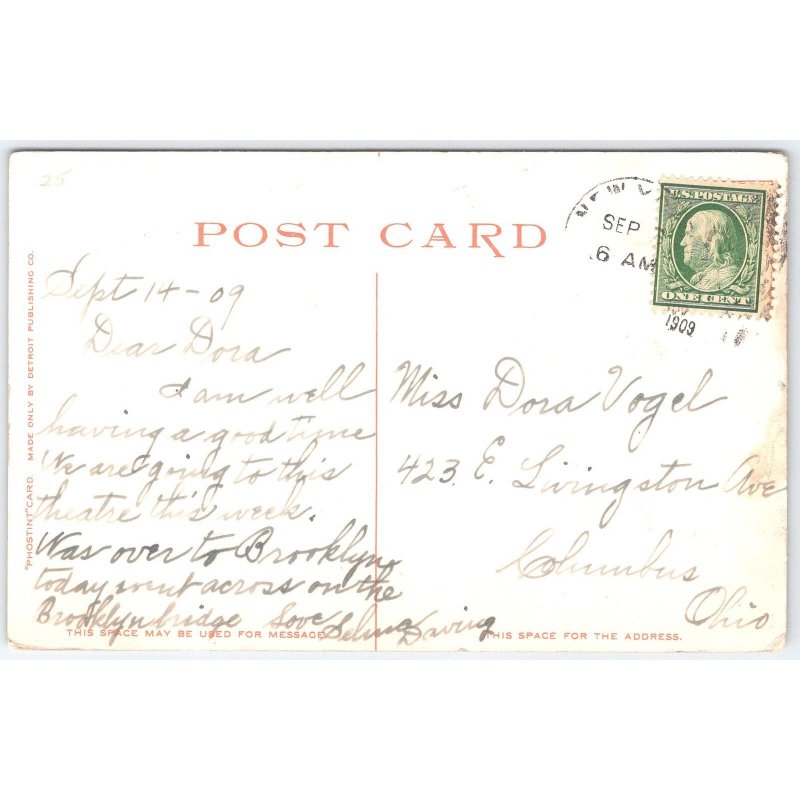 25
POST CARD
NEW
SEP
6 AM
1909
U.S. POSTAGE
ONE CENT
"PHOSTINT" CARD. MADE ONLY BY DETROIT PUBLISHING CO.
Sept 14-09
Dear Dora
I am well
having a good time
We are going to this
theatre this week.
Was over to Brooklyn
today went across on the
Brooklyn bridge Love Selma
Miss Dora Vogel
423. E. Livingston Ave
Columbus
Ohio
THIS SPACE MAY BE USED FOR MESSAGE
THIS SPACE FOR THE ADDRESS.